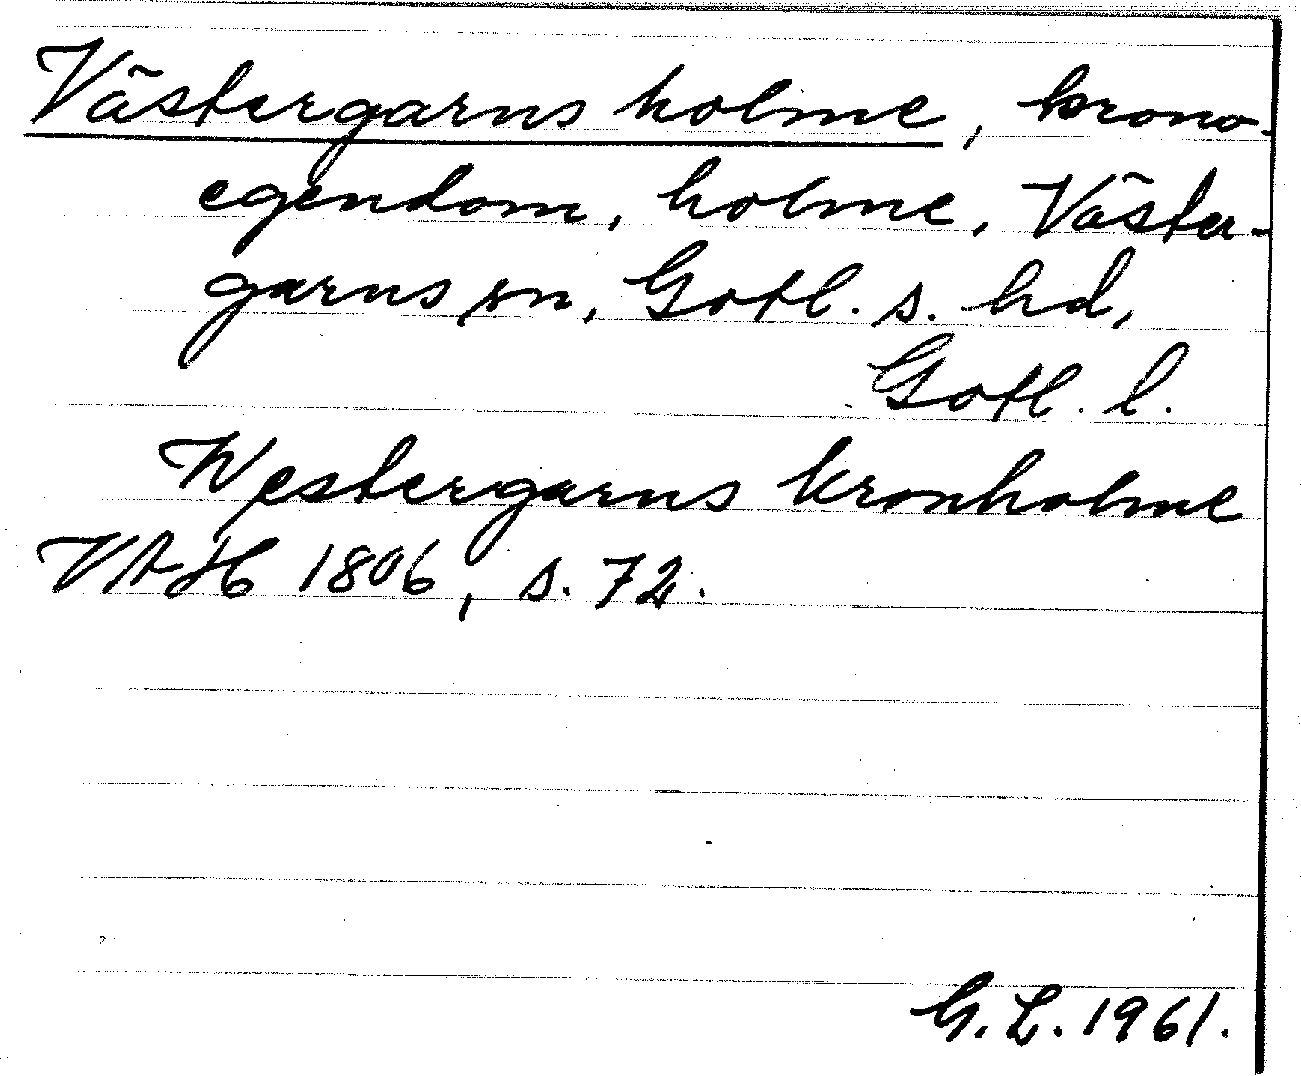 Västergarns holme, krono-
egendom, holme, Väster-
garns sn, Gotl. s. hd,
Gotl. l.
Westergarns kronholme
VAH 1806, s. 72.
G. L. 1961.